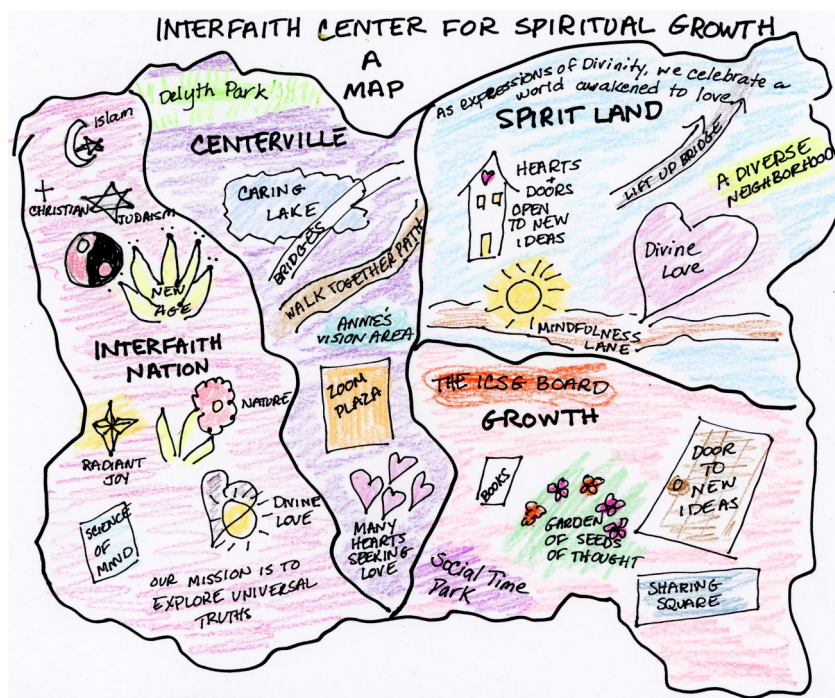 INTERFAITH CENTER FOR SPIRITUAL GROWTH
A
MAP
Islam
CHRISTIAN
JUDAISM
NEW
AGE
INTERFAITH
NATION
NATURE
RADIANT
JOY
DIVINE
LOVE
SCIENCE
OF
MIND
OUR MISSION IS TO
EXPLORE UNIVERSAL
TRUTHS
Delyth Park
CENTERVILLE
CARING
LAKE
BRIDGES
WALK TOGETHER PATH
ANNIE'S
VISION AREA
ZOOM
PLAZA
MANY
HEARTS
SEEKING
LOVE
As expressions of Divinity, we celebrate a
world awakened to love
SPIRIT LAND
HEARTS
+
DOORS
OPEN
TO NEW
IDEAS
LIFT UP BRIDGE
A DIVERSE
NEIGHBORHOOD
Divine
Love
MINDFULNESS
LANE
THE ICSG BOARD
GROWTH
BOOKS
GARDEN
OF SEEDS
OF THOUGHT
DOOR
TO
NEW
IDEAS
Social Time
Park
SHARING
SQUARE